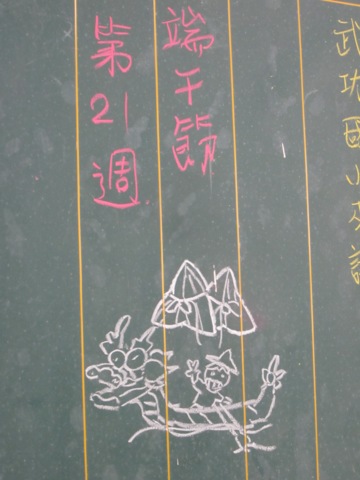 武功國小
端午節
第21週